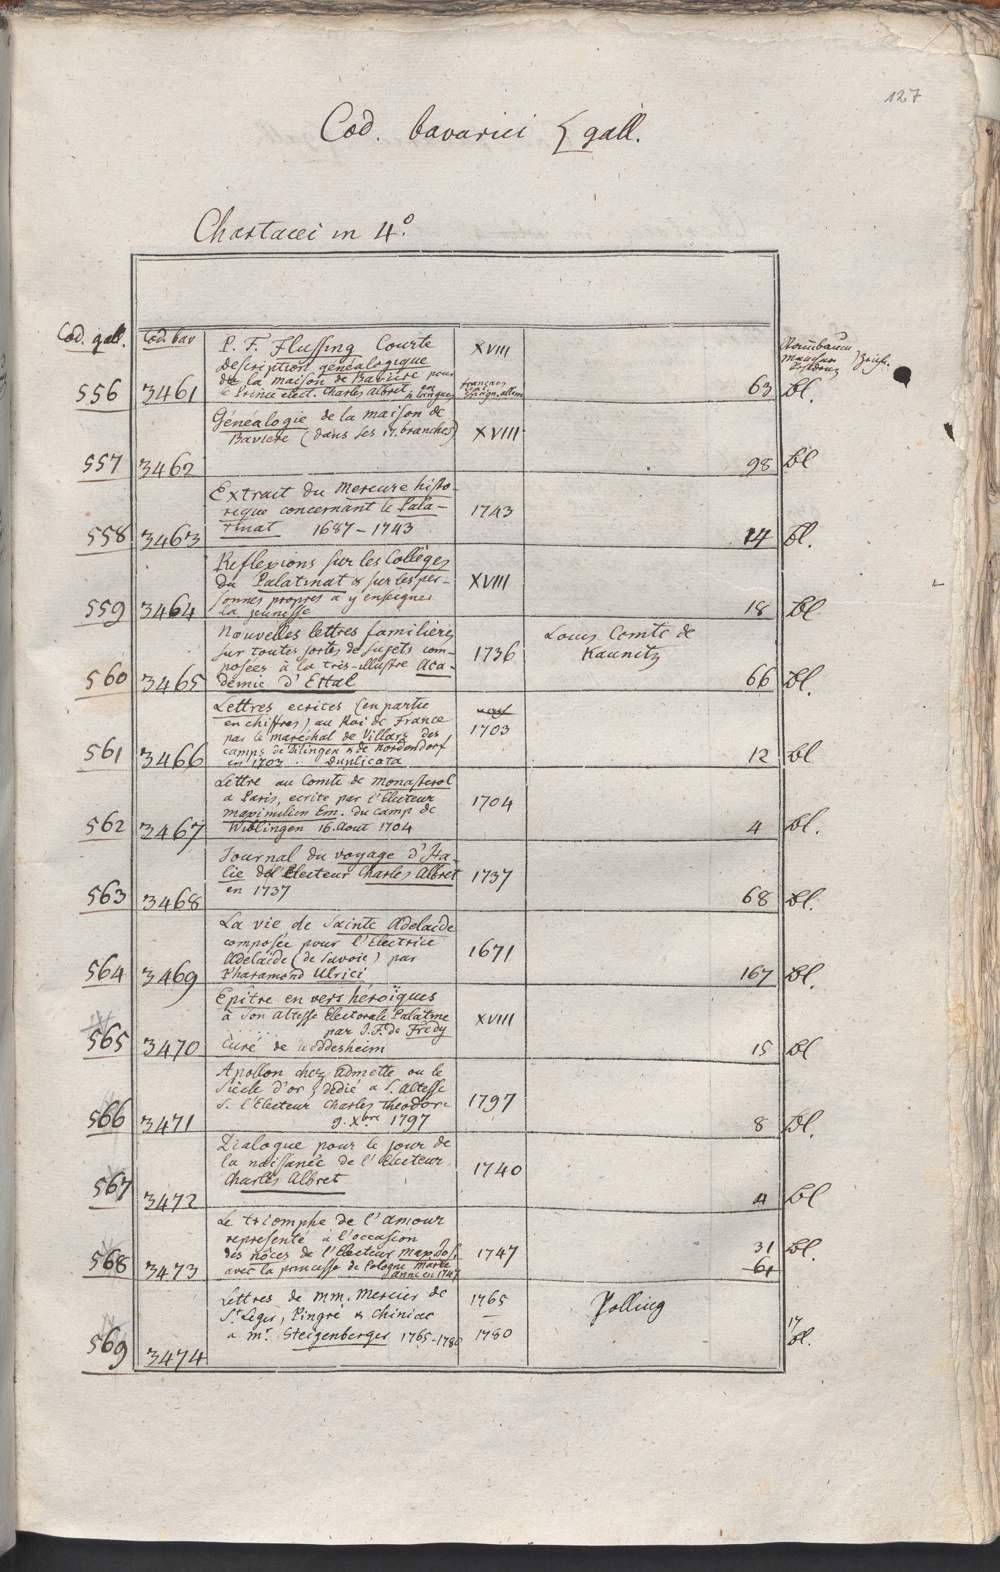 127
Cod. bavarici { gall.
Chartacei in 4.º
Cod. gall. Cod. bav
P. F. Flussing Courte XVIII
description généalogique
de la maison de Baviere pour
556 3461 le Prince elect. Charles Albret en 4 langues français espagn. allem 63 Bl.
Généalogie de la maison de
Baviere (dans ses 17. branches) XVIII
557 3462 98 Bl
Extrait du Mercure histo-
rique concernant le Pala- 1743
558 3463 tinat 1687 - 1743 14 Bl.
Reflexions sur les Collèges
du Palatinat & sur les per- XVIII
sonnes propres a y enseigner
559 3464 la jeunesse 18 Bl
Nouvelles lettres familieres Louis Comte de
sur toutes sortes de sujets com- 1736 Kaunitz
posées à la très-illustre Aca-
560 3465 demie d'Ettal 66 Bl.
Lettres ecrites (en partie
en chiffres) au Roi de France 1703
par le maréchal de Villars des
camps de Dilingen & de Nordendorf
561 3466 en 1703 . duplicata 12 Bl
Lettre au Comte de Monasterol
a Paris, ecrite par l'Electeur 1704
Maximilien Em. du camp de
562 3467 Wiblingen 16. Aout 1704 4 Bl.
Journal du voyage d'Ita-
lie de l'Electeur Charles Albret 1737
en 1737
563 3468 68 Bl.
La vie de Sainte Adelaide
composée pour l'Electrice 1671
Adelaïde (de Savoie) par
564 3469 Pharamond Ulrici 167 Bl.
Epître en vers héroïques
à Son Altesse Electorale Palatine XVIII
. . . . . . par J. F. de Fredy
565 3470 Curé de Heddesheim 15 Bl
Apollon chez Admette ou le
Siècle d'or, dédié a S. Altesse
S. l'Electeur Charles Theodore 1797
566 3471 9. Xbre 1797 8 Bl.
Dialogue pour le jour de
la naissance de l'Electeur 1740
Charles Albret
567 3472 4 Bl
Le triomphe de l'amour
representé à l'occasion 31
des nôces de l'Electeur Max. Jos. 1747 Bl.
568 3473 avec la princesse de Pologne Marie Anne en 1747 61
Lettres de MM. Mercier de 1765 Polling
St Leger, Pingré & Chiniac — 17
a Mr. Steigenberger 1765-1780 1780 Bl.
569 3474